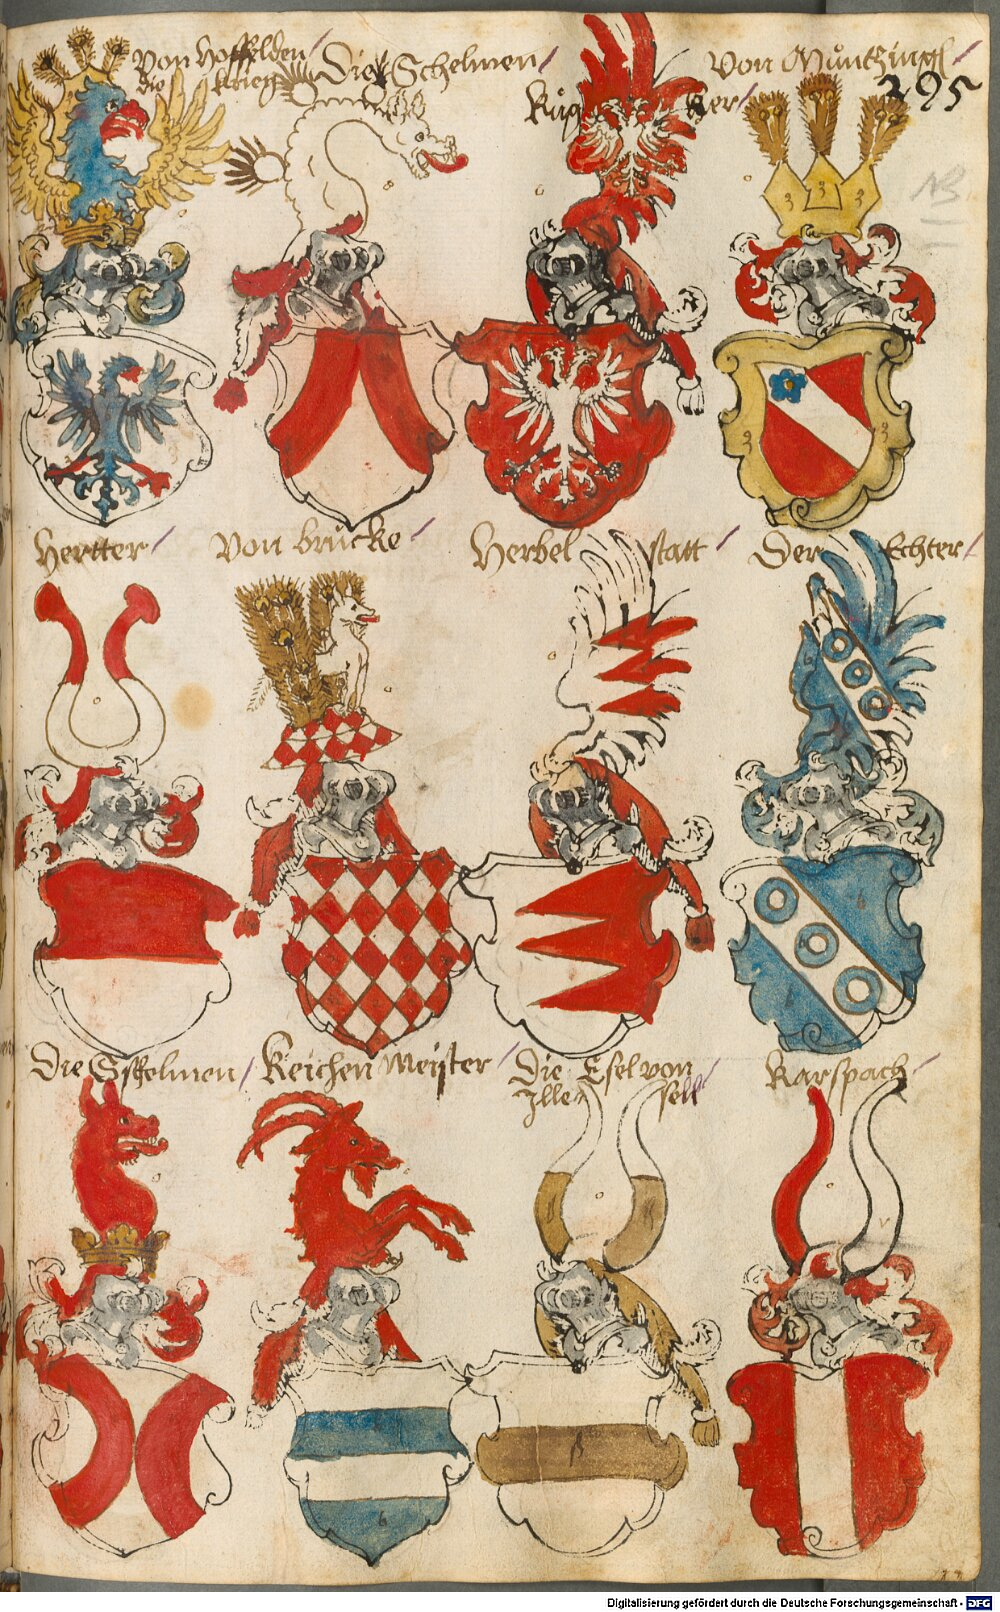 Von
die krieg
Die Schelmen
Rüg ker
Von Müntzingl
295
NB
3 3 3
3 3
Hertter
Von brücke
Herbel statt
Der Echter
Die Schelmen
Reichen Meister
Die Esel von
Ille sell
Karspach
b
b
Digitalisierung gefördert durch die Deutsche Forschungsgemeinschaft - DFG